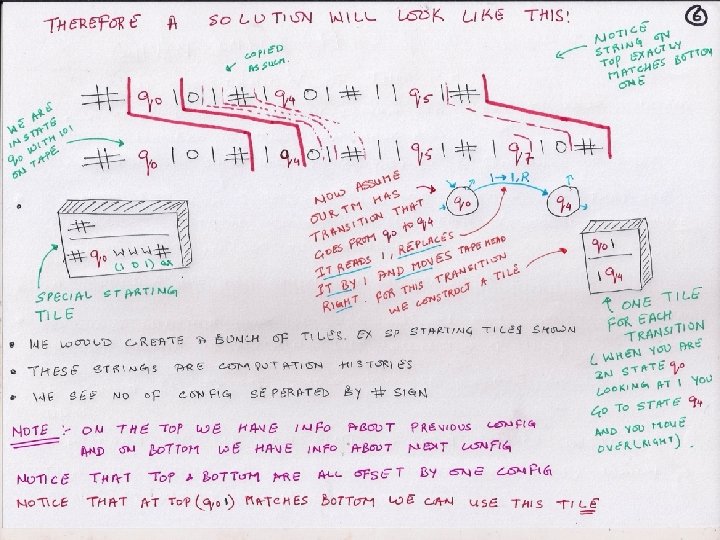 THEREFORE A SOLUTION WILL LOOK LIKE THIS!
6
NOTICE
STRING ON
TOP EXACTLY
MATCHES BOTTOM
ONE
COPIED
AS SUCH.
# q0 1 0 1 # 1 q4 0 1 # 1 1 q5 1 #
WE ARE
IN STATE
q0 WITH 101
ON TAPE
# q0 1 0 1 # 1 q4 0 1 # 1 1 q5 1 # 1 q7 1 0 #
#
# q0 WWW #
(1 0 1)
SPECIAL STARTING
TILE
NOW ASSUME
OUR TM HAS
TRANSITION THAT
GOES FROM q0 TO q4
IT READS 1, REPLACES
IT BY 1 AND MOVES TAPE HEAD
RIGHT. FOR THIS TRANSITION
WE CONSTRUCT A TILE
1→1,R
q0
q4
q0 1
1 q4
ONE TILE
FOR EACH
TRANSITION
(WHEN YOU ARE
IN STATE q0
LOOKING AT 1 YOU
GO TO STATE q4
AND YOU MOVE
OVER(RIGHT).
• WE WOULD CREATE A BUNCH OF TILES. EX SP STARTING TILES SHOWN
• THESE STRINGS ARE COMPUTATION HISTORIES
• WE SEE NO OF CONFIG SEPERATED BY # SIGN
NOTE :- ON THE TOP WE HAVE INFO ABOUT PREVIOUS CONFIG
AND ON BOTTOM WE HAVE INFO ABOUT NEXT CONFIG
NOTICE THAT TOP & BOTTOM ARE ALL OFSET BY ONE CONFIG
NOTICE THAT AT TOP (q0 1) MATCHES BOTTOM WE CAN USE THIS TILE